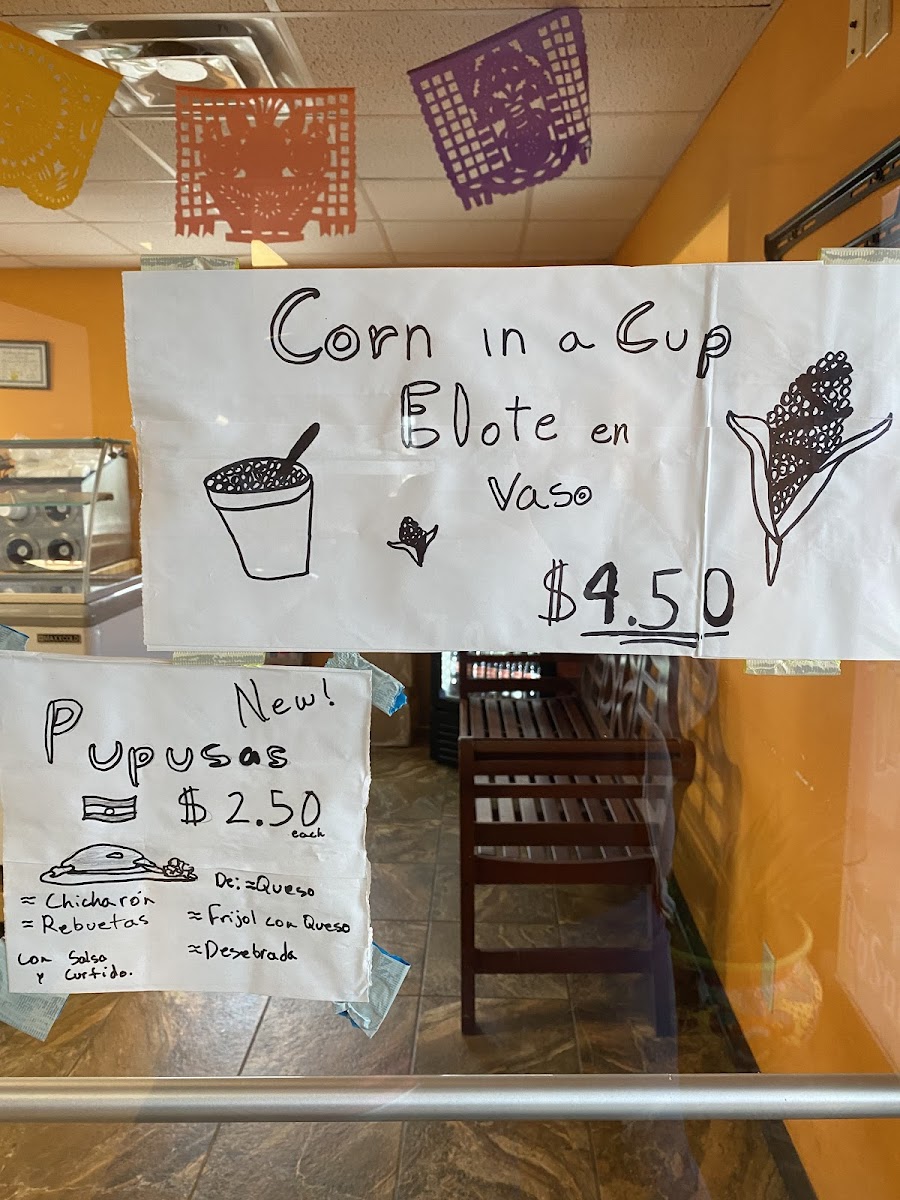 Corn in a Cup
Elote en
Vaso
$4.50
New!
Pupusas
$2.50
each
De: ≈Queso
≈ Chicharón
≈ Frijol con Queso
≈ Rebuetas
≈Desebrada
con Salsa
y Curtido.
MAXXCOLD